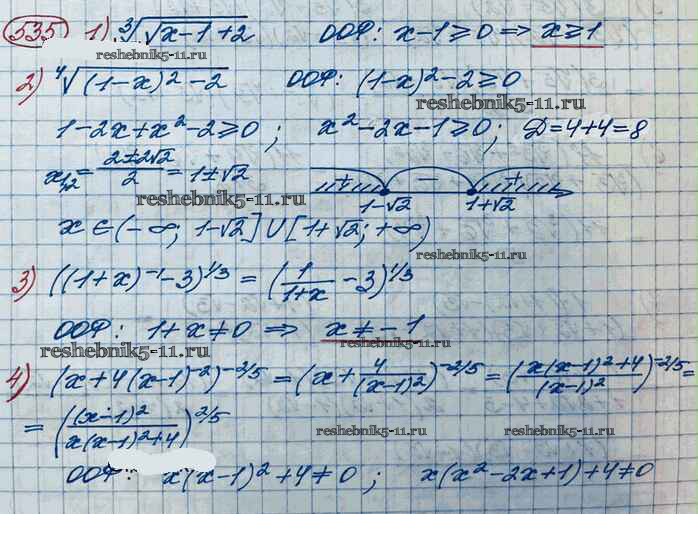 535 1) ∛(√(x-1)+2) ООФ: x-1≥0 ⇒ x≥1
reshebnik5-11.ru
2) ⁴√((1-x)²-2) ООФ: (1-x)²-2≥0
reshebnik5-11.ru
1-2x+x²-2≥0; x²-2x-1≥0; Д=4+4=8
x₁,₂ = (2±2√2)/2 = 1±√2 + − +
reshebnik5-11.ru
1-√2 1+√2
x∈(-∞; 1-√2]∪[1+√2; +∞)
reshebnik5-11.ru
3) ((1+x)⁻¹-3)^1/3 = (1/(1+x) -3)^1/3
ООФ: 1+x≠0 ⇒ x≠-1
reshebnik5-11.ru reshebnik5-11.ru
4) (x+4(x-1)⁻²)^-2/5 = (x+4/(x-1)²)^-2/5 = ((x(x-1)²+4)/(x-1)²)^-2/5 =
= ((x-1)²/(x(x-1)²+4))^2/5
reshebnik5-11.ru reshebnik5-11.ru
ООФ: x(x-1)²+4≠0; x(x²-2x+1)+4≠0